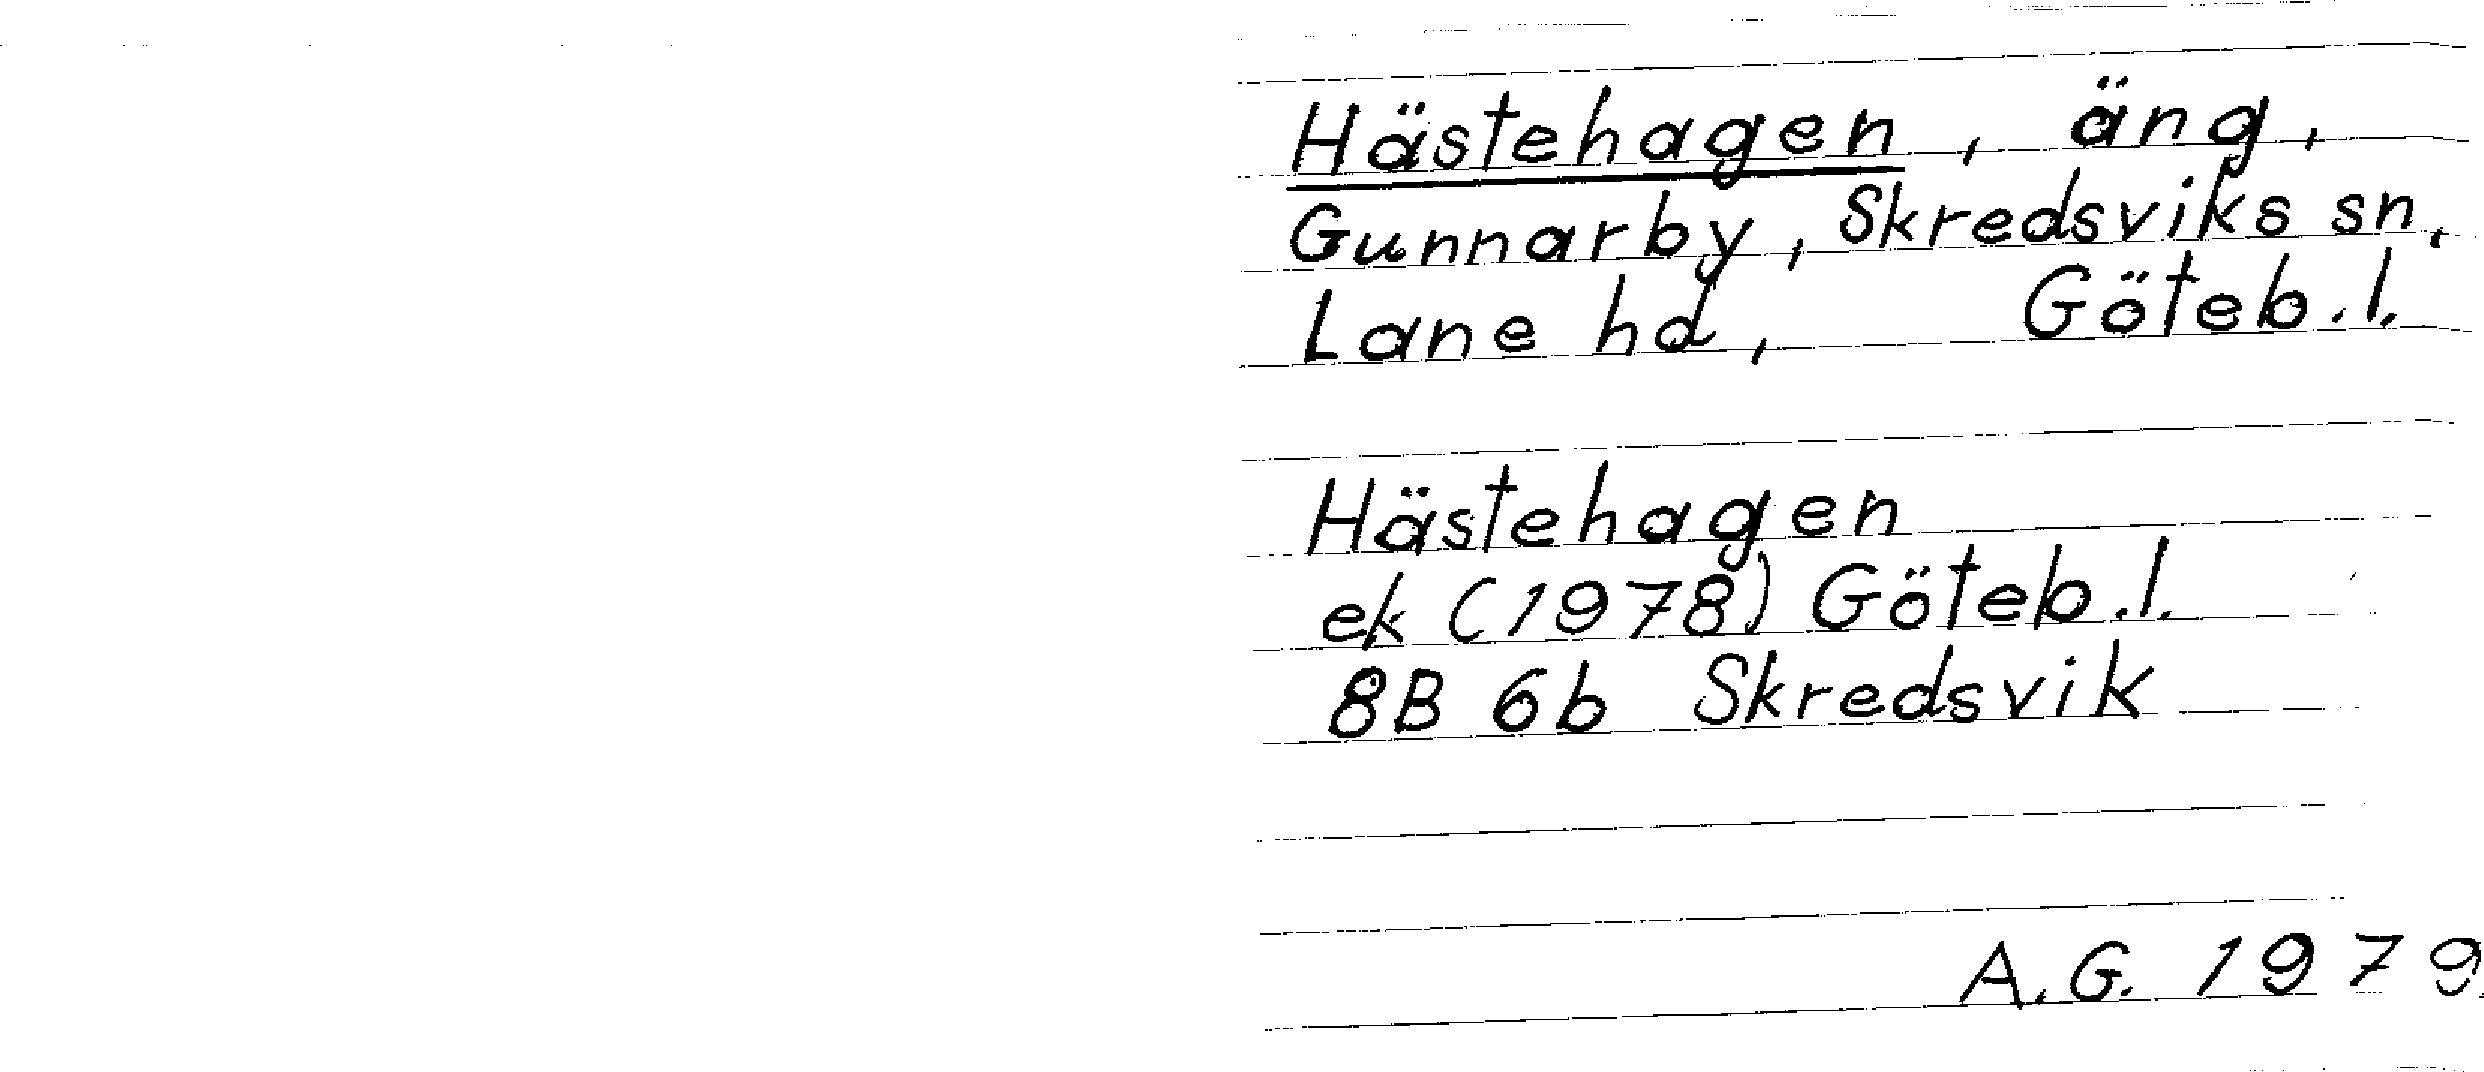 Hästehagen, äng,
Gunnarby, Skredsviks sn,
Lane hd, Göteb.l.
Hästehagen
ek (1978) Göteb.l.
8B 6b Skredsvik
A.G. 1979